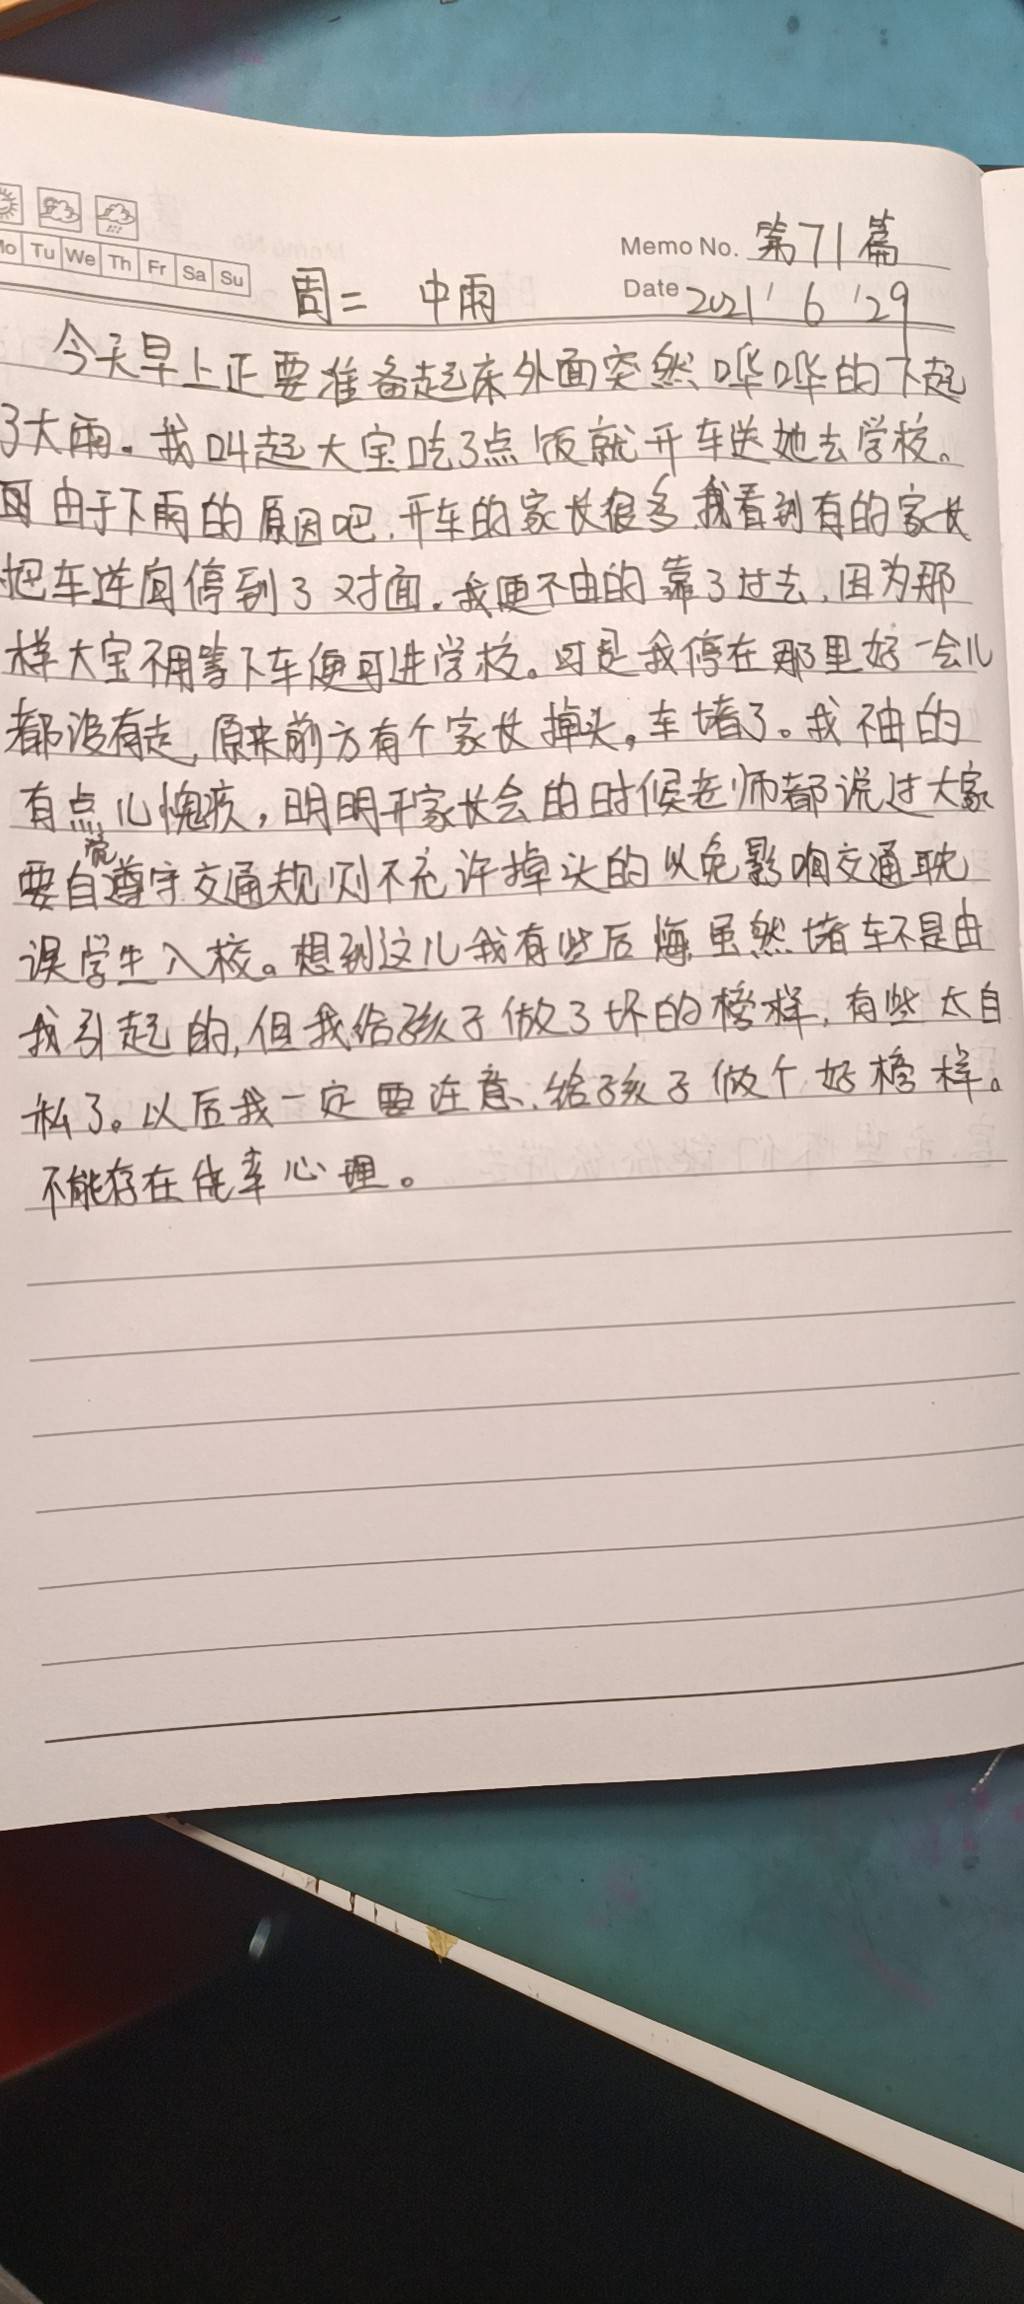 Mo Tu We Th Fr Sa Su
Memo No. 第71篇
周二 中雨
Date 2021' 6 '29
今天早上正要准备起床外面突然哗哗的下起
了大雨。我叫起大宝吃了点饭就开车送她去学校。
可由于下雨的原因吧,开车的家长很多,我看到有的家长
把车逆向停到了对面。我便不由的靠了过去,因为那
样大宝不用等下车便可进学校。可是我停在那里好一会儿
都没有走,原来前方有个家长掉头,车堵了。我神的
有点儿愧疚,明明开家长会的时候老师都说过大家
要自觉遵守交通规则不充许掉头的以免影响交通耽
误学生入校。想到这儿我有些后悔,虽然堵车不是由
我引起的,但我给孩子做了坏的榜样,有些太自
私了。以后我一定要注意,给孩子做个好榜样。
不能存在侥幸心理。